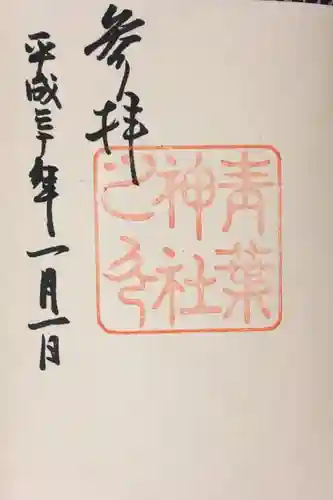 青葉
神社
之印
参拝
平成三十年一月一日